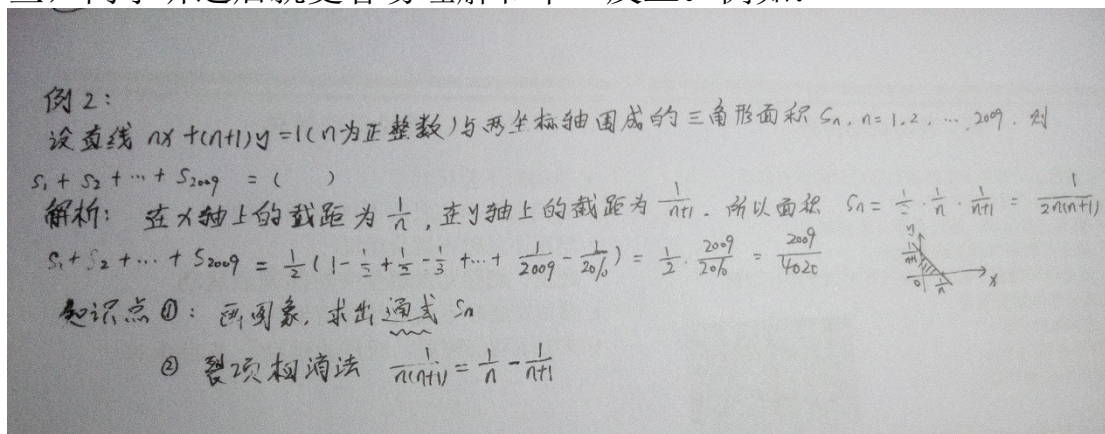 例2：
设直线 nx+(n+1)y=1(n为正整数)与两坐标轴围成的三角形面积 Sn, n=1,2,…,2009. 则
S₁+S₂+…+S₂₀₀₉ =(    )
解析：在x轴上的截距为 1/n, 在y轴上的截距为 1/(n+1). 所以面积 Sn = 1/2 · 1/n · 1/(n+1) = 1/(2n(n+1))
S₁+S₂+…+S₂₀₀₉ = 1/2(1-1/2+1/2-1/3+…+1/2009-1/2010) = 1/2 · 2009/2010 = 2009/4020
y 1/(n+1) 0 1/n x
知识点①：画图象, 求出通式 Sn
② 裂项相消法 1/(n(n+1)) = 1/n - 1/(n+1)